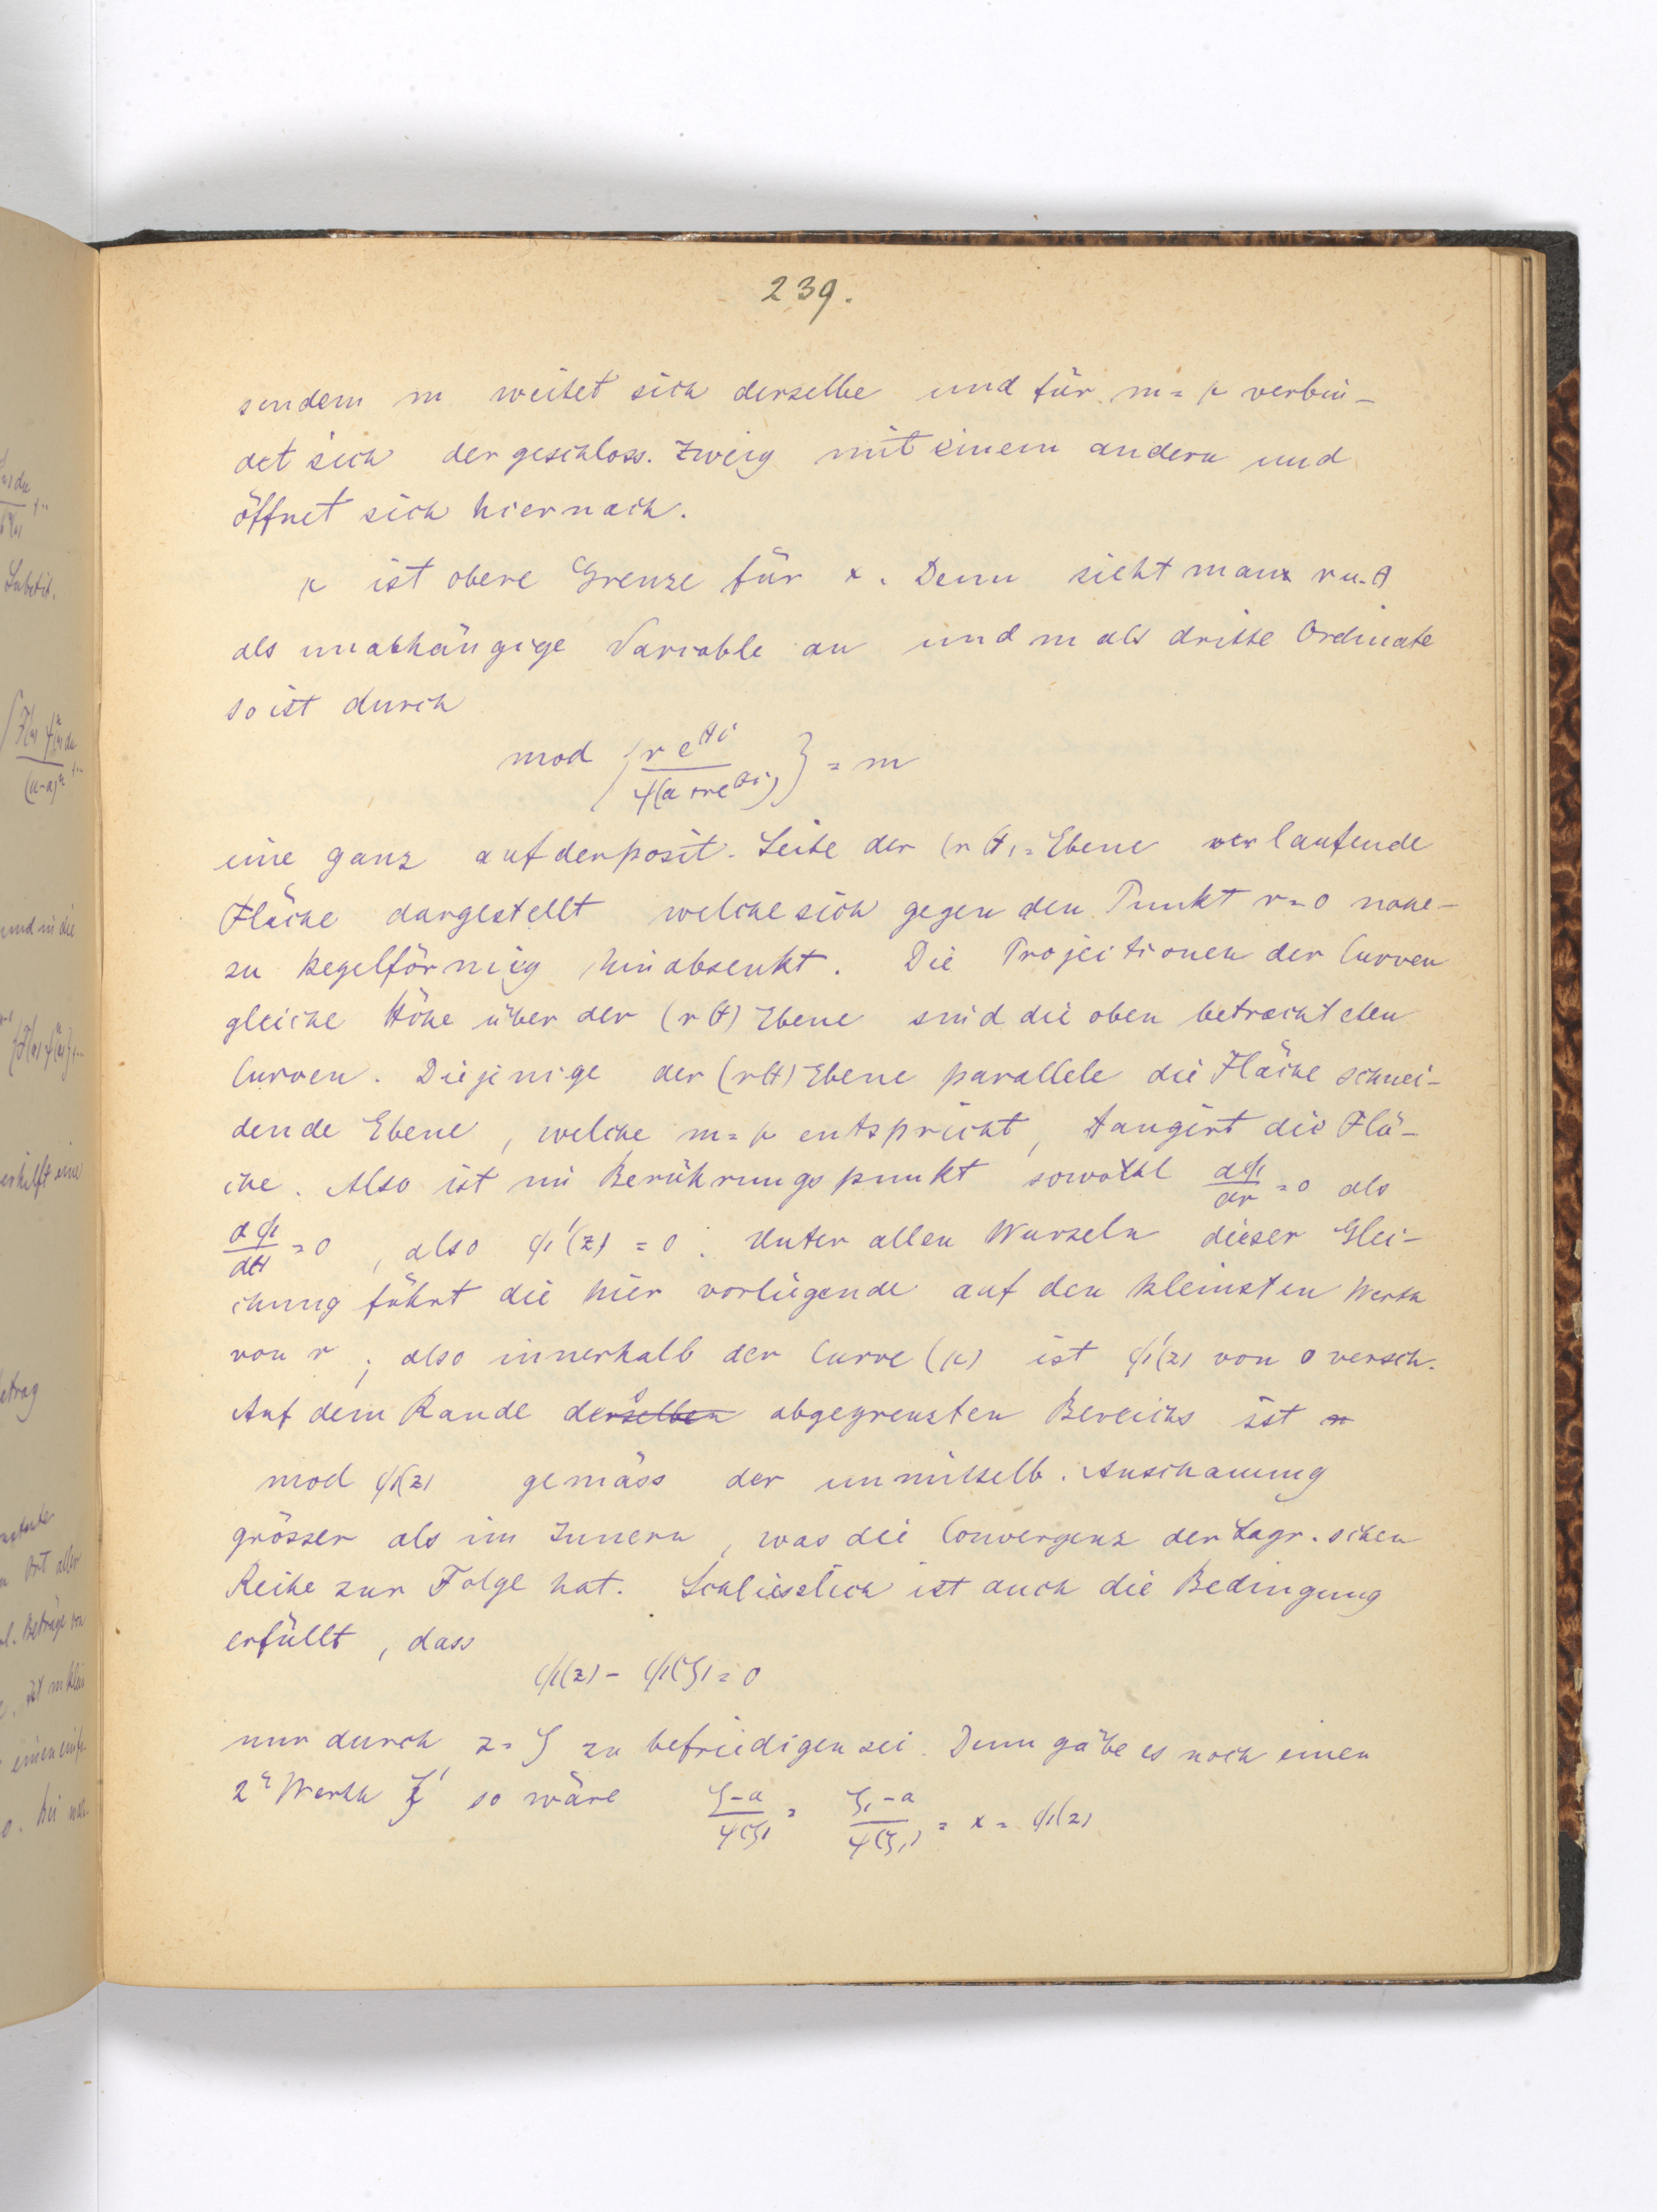 239.
sendem m weitet sich derselbe und für m = μ verbin-
det sich der geschloss. Zweig mit einem andern und
öffnet sich hiernach.
μ ist obere Grenze für x. Denn sieht man r u. θ
als unabhängige Variable an und m als dritte Ordinate
so ist durch
mod { r e^{θi} / ψ(a + r e^{θi}) } = m
eine ganz auf der posit. Seite der (rθ)=Ebene verlaufende
Fläche dargestellt welche sich gegen den Punkt r=0 nahe-
zu kegelförmig hinabsenkt. Die Projectionen der Curven
gleiche Höhe über der (rθ) Ebene sind die oben betrachteten
Curven. Diejenige der (rθ) Ebene parallele die Fläche schnei-
dende Ebene, welche m = μ entspricht, tangirt die Flä-
che. Also ist im Berührungspunkt sowohl dφ/dr = 0 als
dφ/dθ = 0, also φ'(z) = 0. Unter allen Wurzeln dieser Glei-
chung führt die hier vorliegende auf den kleinsten Werth
von r; also innerhalb der Curve (μ) ist φ'(z) von 0 versch.
Auf dem Rande derselben abgegrenzten Bereichs ist
mod φ(z) gemäss der unmittelb. Anschauung
grösser als im Innern, was die Convergenz der Lagr.schen
Reihe zur Folge hat. Schliesslich ist auch die Bedingung
erfüllt, dass
φ(z) - φ(ζ) = 0
nur durch z = ζ zu befriedigen sei. Denn gäbe es noch einen
2^n Werth ζ' so wäre (ζ-a)/ψ(ζ) = (ζ₁-a)/ψ(ζ₁) = x = φ(z)